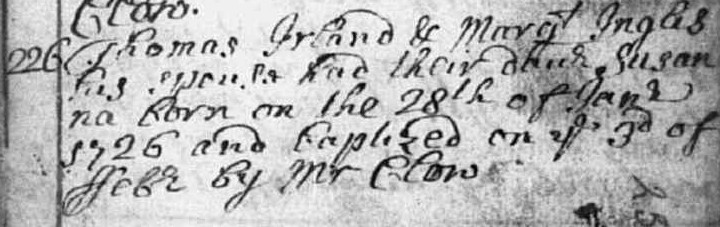 Clow.
226 Thomas Irland & Margt Inglis
his spouse had their daur Susan
na born on the 28th of Janr
1726 and baptized on ye 3d of
ffebr by Mr Clow